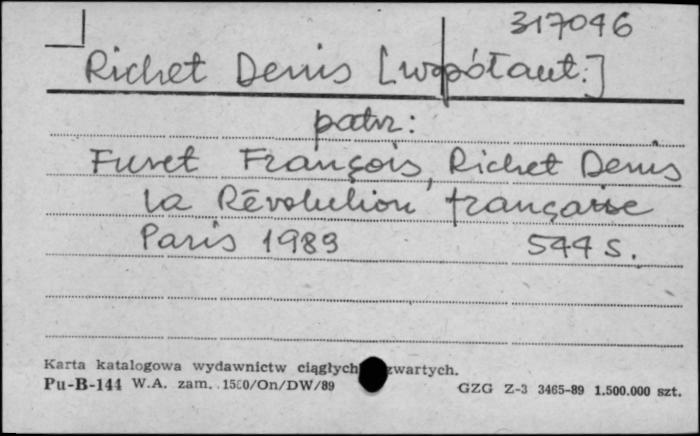 317046
Richet Denis [współaut.]
patrz:
Furet François, Richet Denis
La Révolution française
Paris 1989 544 s.
Karta katalogowa wydawnictw ciągłych zwartych.
Pu-B-144 W.A. zam. 1580/On/DW/89 GZG Z-3 3465-89 1.500.000 szt.